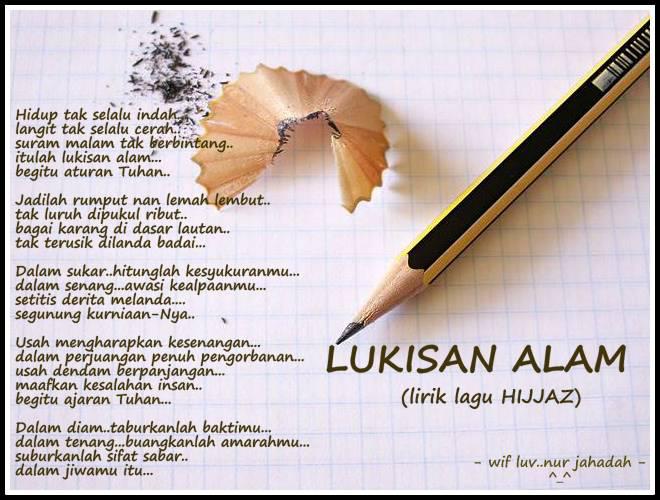 Hidup tak selalu indah..
langit tak selalu cerah..
suram malam tak berbintang..
itulah lukisan alam...
begitu aturan Tuhan..
Jadilah rumput nan lemah lembut..
tak luruh dipukul ribut..
bagai karang di dasar lautan..
tak terusik dilanda badai...
Dalam sukar..hitunglah kesyukuranmu...
dalam senang...awasi kealpaanmu...
setitis derita melanda....
segunung kurniaan-Nya..
Usah mengharapkan kesenangan...
dalam perjuangan penuh pengorbanan...
usah dendam berpanjangan...
maafkan kesalahan insan..
begitu ajaran Tuhan...
Dalam diam..taburkanlah baktimu...
dalam tenang...buangkanlah amarahmu...
suburkanlah sifat sabar..
dalam jiwamu itu...
LUKISAN ALAM
(lirik lagu HIJJAZ)
- wif luv..nur jahadah -
^_^